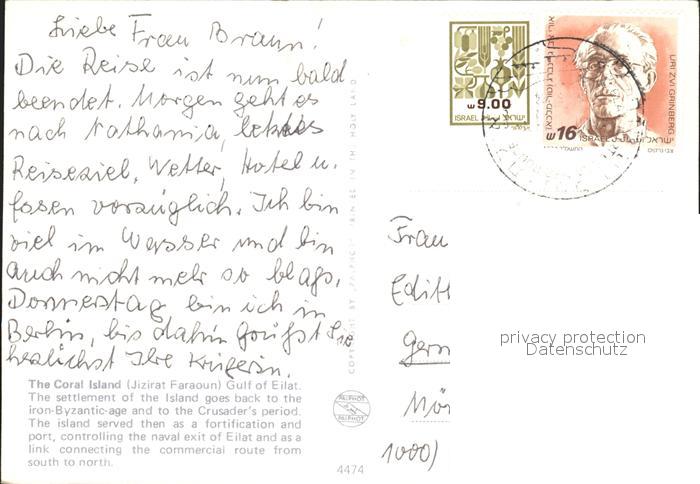 Liebe Frau Braun!
Die Reise ist nun bald
beendet. Morgen geht es
nach Nathania, letztes
Reiseziel, Wetter, Hotel u.
Essen vorzüglich. Ich bin
viel im Wasser und bin
auch nicht mehr so blass.
Donnerstag bin ich in
Berlin, bis dahin grüßt Sie
herzlichst Ihre Krügerin.
The Coral Island (Jizirat Faraoun) Gulf of Eilat.
The settlement of the Island goes back to the
iron-Byzantic-age and to the Crusader's period.
The island served then as a fortification and
port, controlling the naval exit of Eilat and as a
link connecting the commercial route from
south to north.
PALPHOT
4474
9.00
ISRAEL ישראל
16
ISRAEL ישראל
URI ZVI GRINBERG
Frau
Edit
1000)
privacy protection
Datenschutz